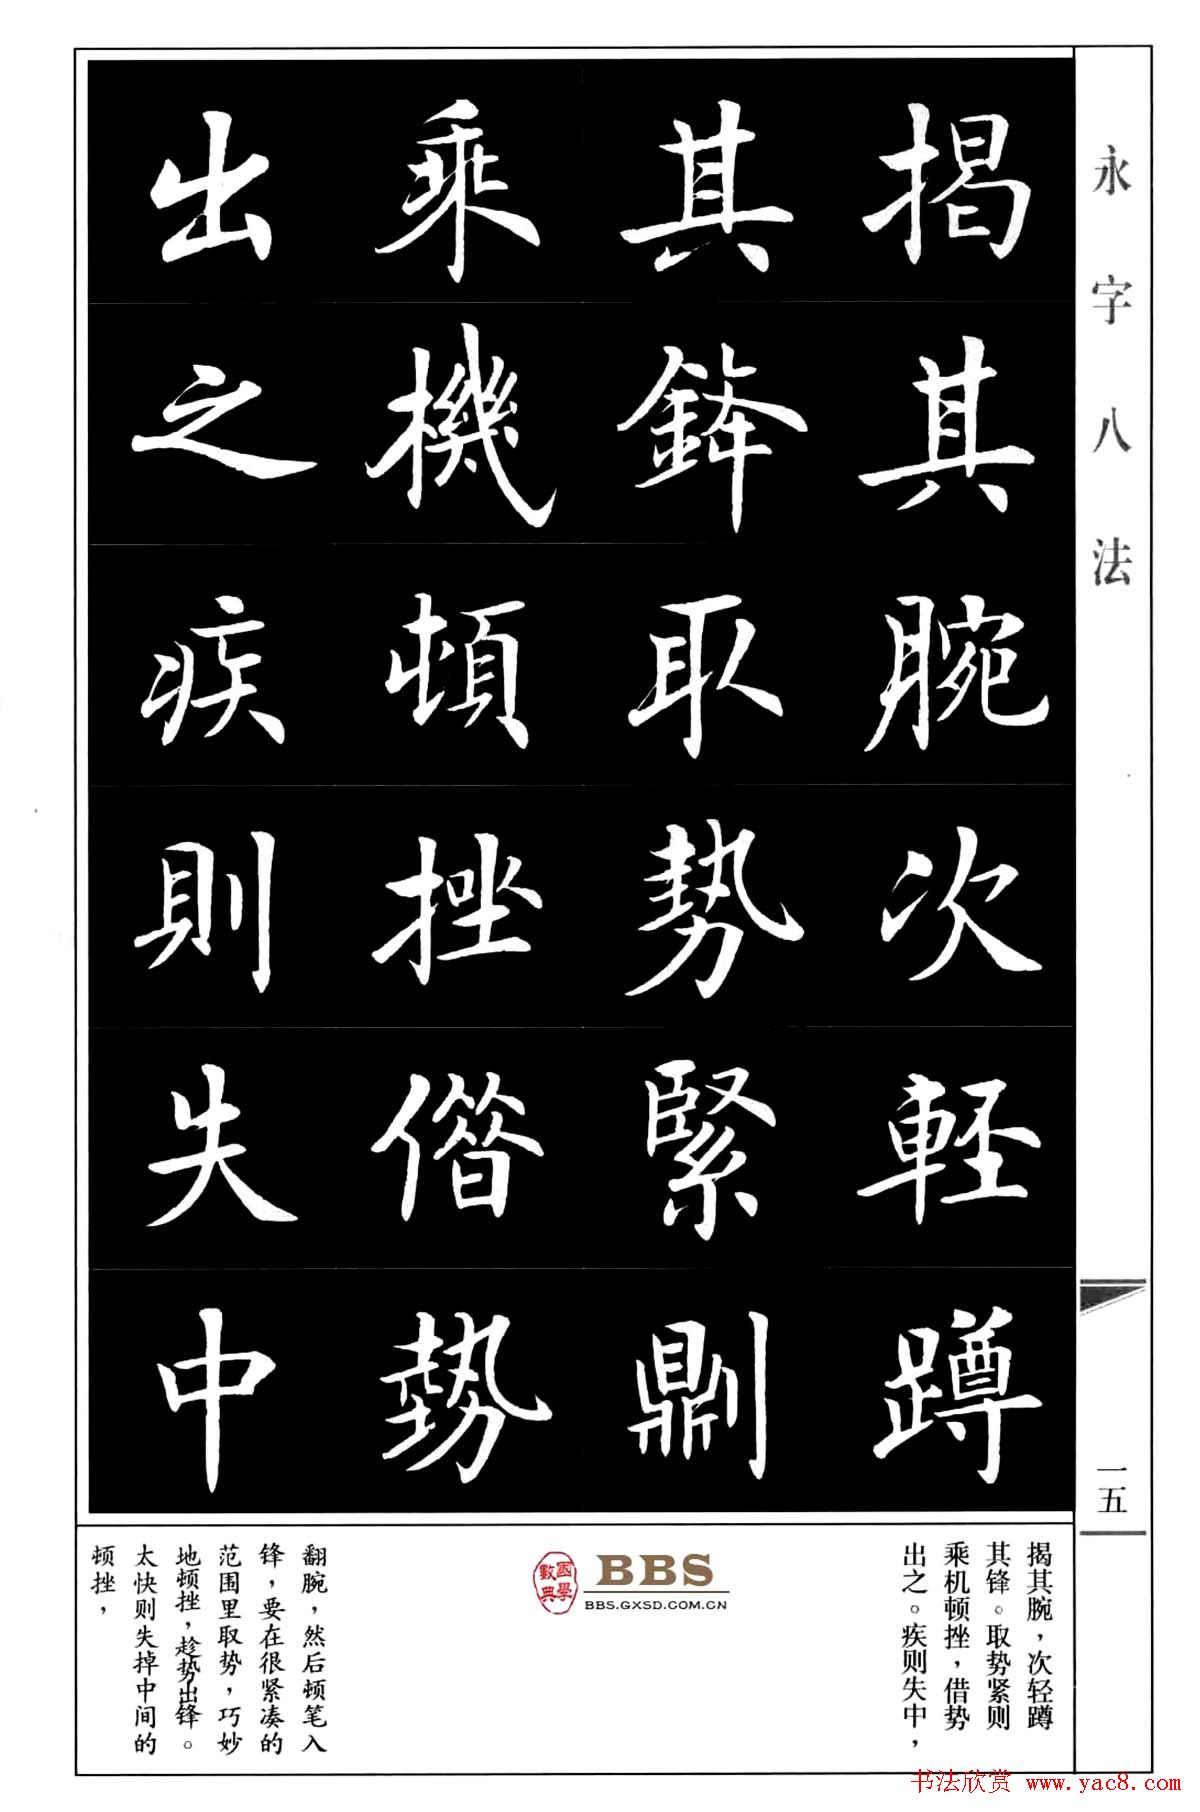 永字八法
揭其腕次輕蹲
其鋒取勢緊劓
乘機頓挫偺勢
出之疾則失中
一五
揭其腕，次轻蹲
其锋。取势紧则
乘机顿挫，借势
出之。疾则失中，
國學數典
BBS
BBS.GXSD.COM.CN
翻腕，然后顿笔入
锋，要在很紧凑的
范围里取势，巧妙
地顿挫，趁势出锋。
太快则失掉中间的
顿挫，
书法欣赏 www.yac8.com